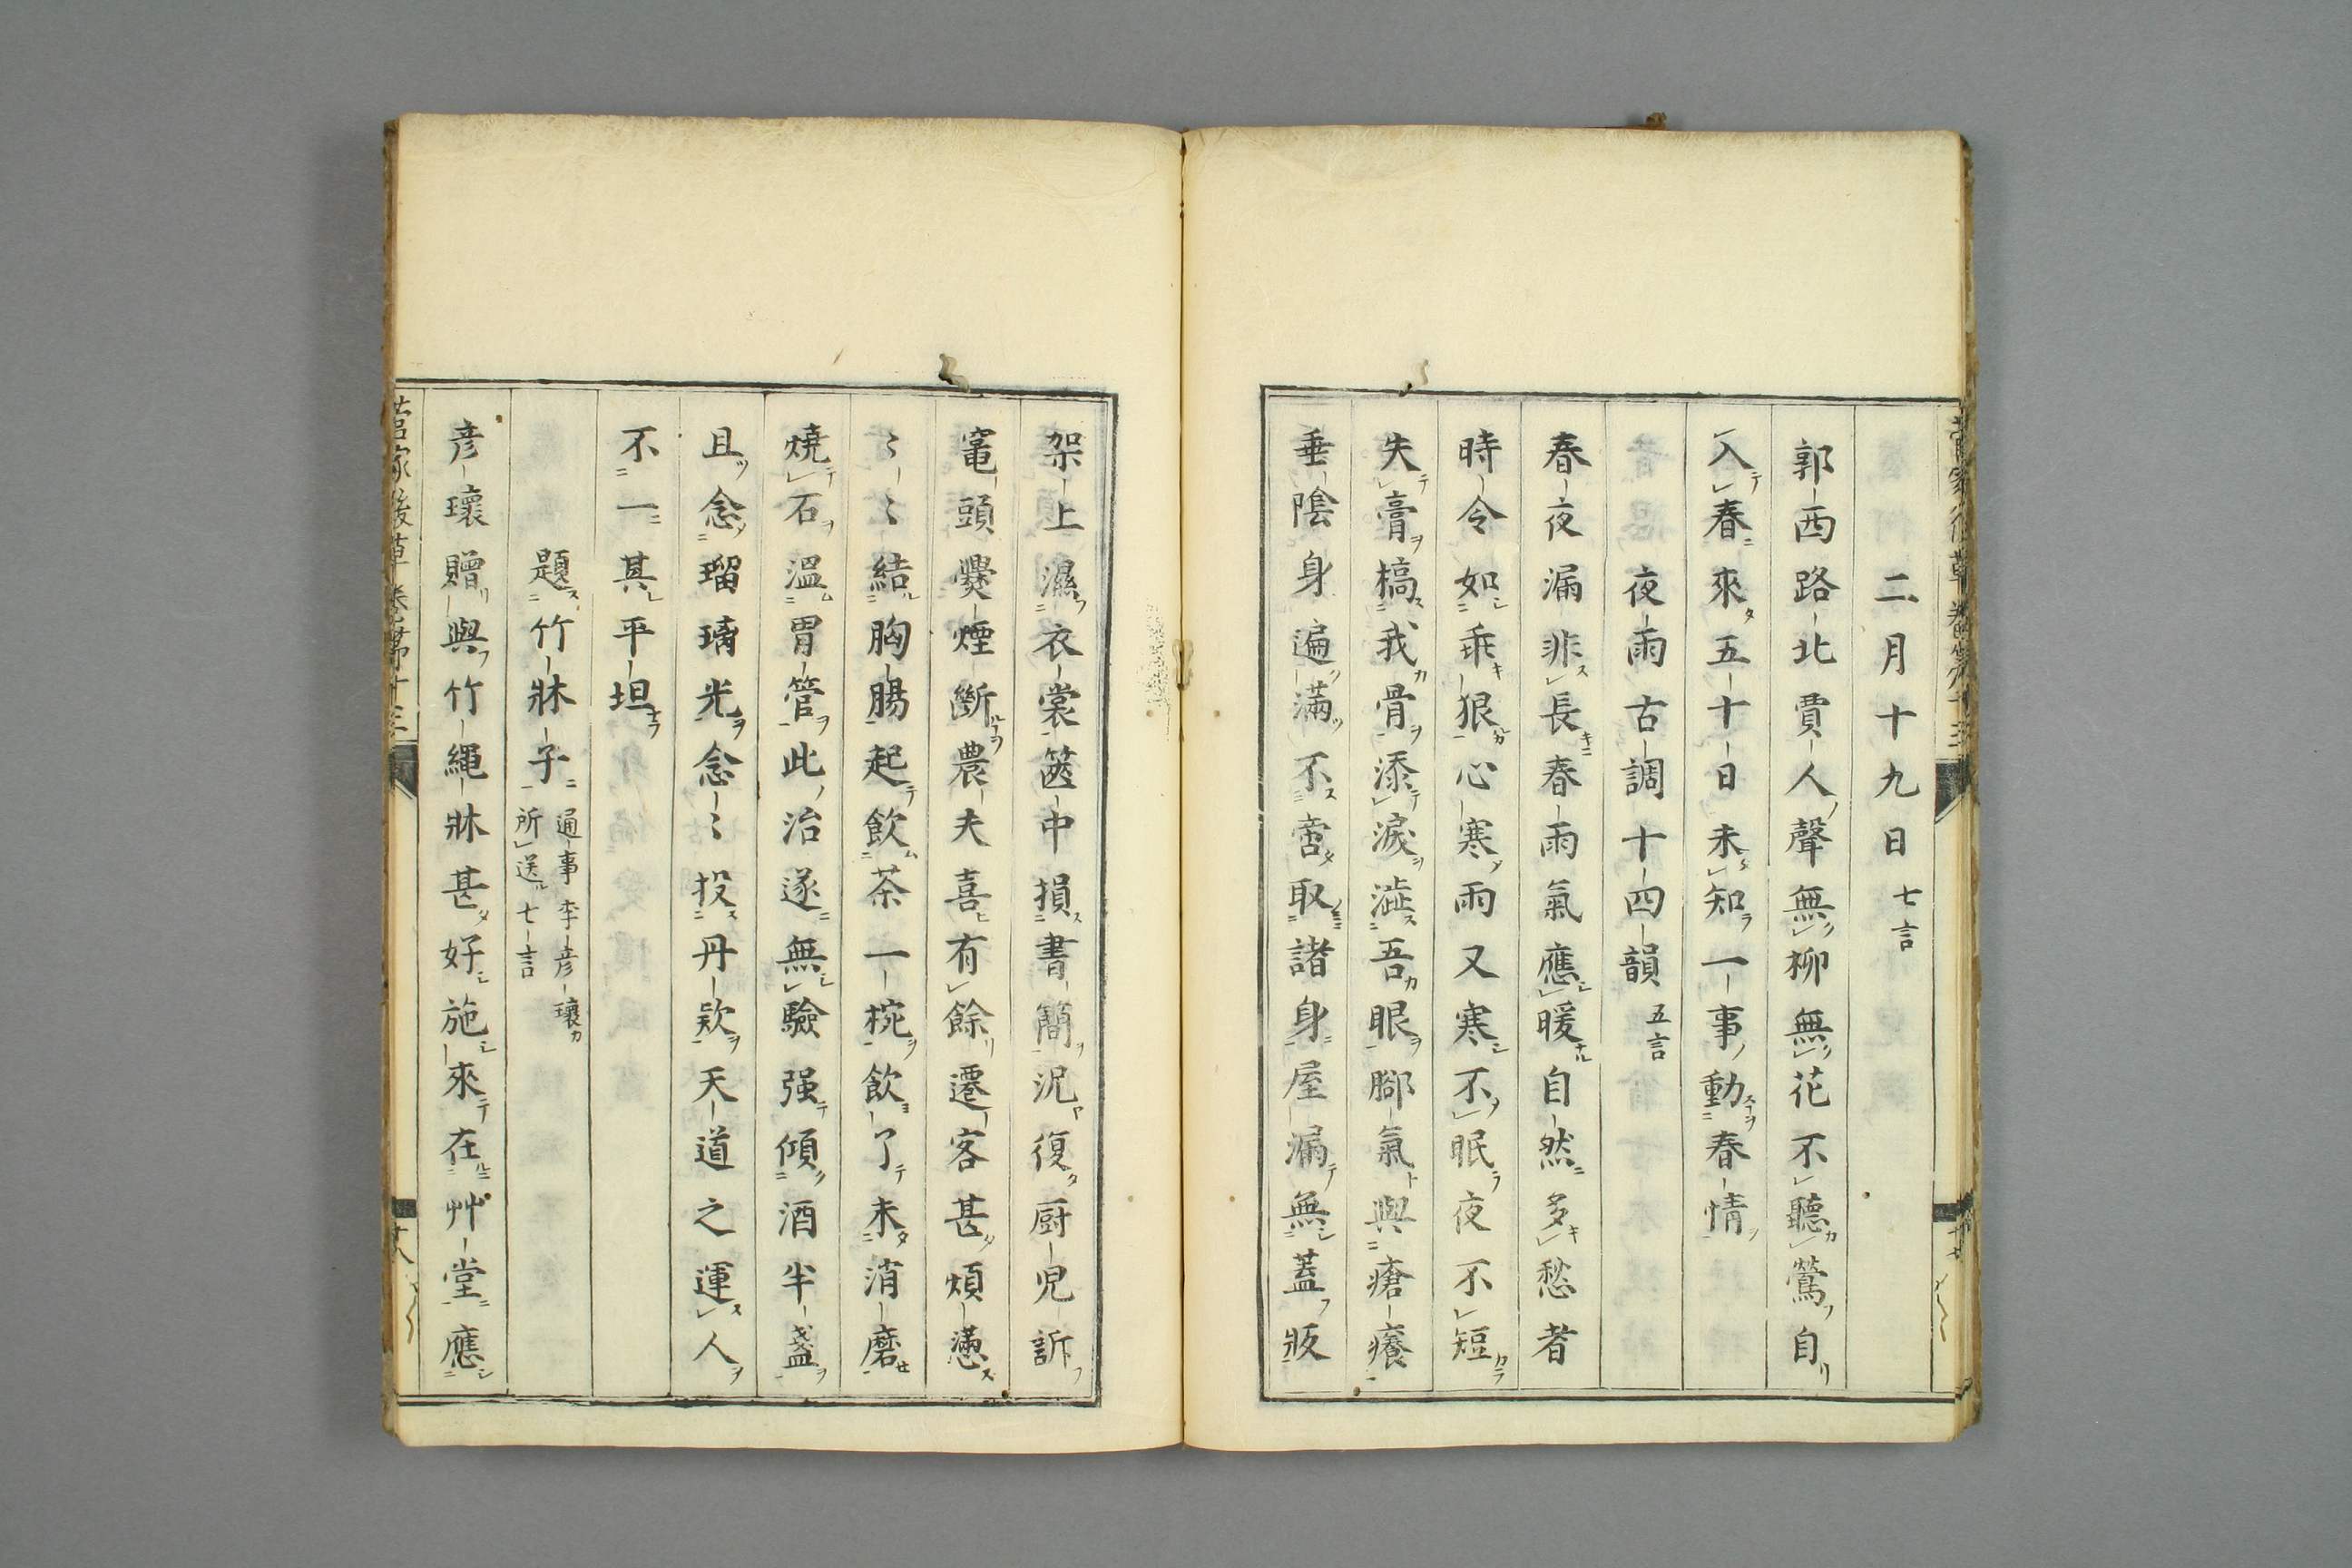 二月十九日 七言
郭西路北賈人聲無柳無花不聽鶯自
入春來五十日未知一事動春情
夜雨古調十四韻 五言
春夜漏非長春雨氣應暖自然多愁者
時令如乖狠心寒雨又寒不眠夜不短
失膏槁我骨添淚澁吾眼脚氣與瘡癢
垂陰身遍滿不啻取諸身屋漏無蓋版
架上濕衣裳篋中損書簡況復厨児訴
竃頭爨煙斷農夫喜有餘遷客甚煩懣
〻〻結胸腸起飲茶一椀飲了未消磨
燒石溫胃管此治遂無驗强傾酒半盞
且念瑠璃光念〻投丹欵天道之運人
不一其平坦
題竹牀子 通事李彦環
所送七言
彦環贈與竹繩牀甚好施來在艸堂應
菅家後草 卷第十三
十八